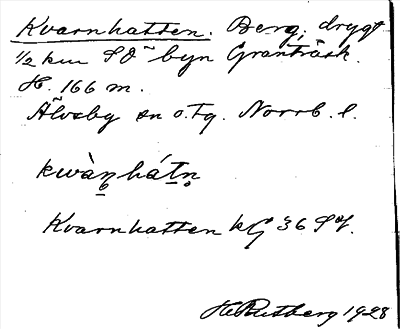 Kvarnhatten. Berg, drygt
1/2 km SO byn Granträsk.
H. 166 m.
Älvsby sn o. tg. Norrb. l.
kwàn̥hátn̥
Kvarnhatten kG 36 SO.
H. Rutberg 1928